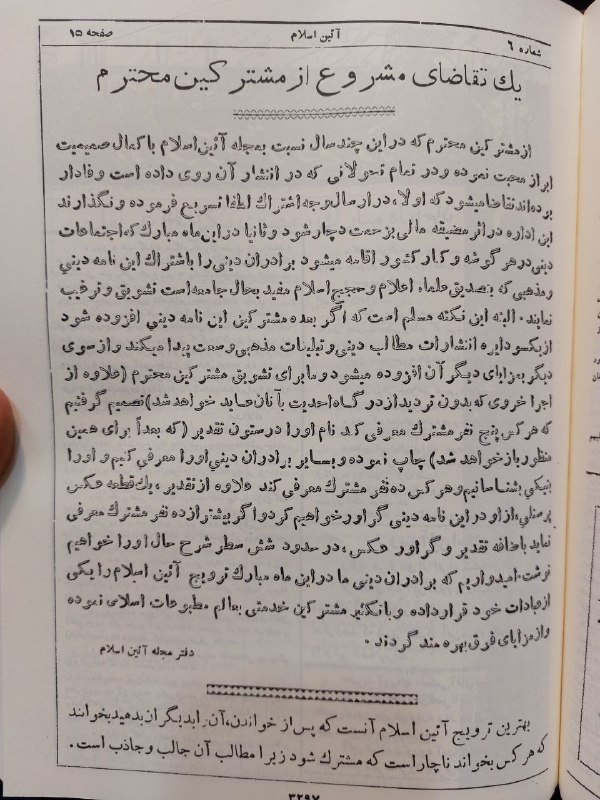 شماره ۶
آئین اسلام
صفحه ۱۵
یك تقاضای مشروع از مشتركین محترم
از مشتركین محترم كه در این چند سال نسبت بمجله آئین اسلام با كمال صمیمیت
ابراز محبت نموده و در تمام تحولاتی كه در انتشار آن روی داده است وفادار
بوده‌اند تقاضا میشود كه اولا، در ارسال وجه اشتراك لطفا تسریع فرموده و نگذارند
این اداره در اثر مضیقه مالی بزحمت دچار شود و ثانیا در این ماه مبارك كه اجتماعات
دینی در هر گوشه و كنار كشور اقامه میشود برادران دینی را باشتراك این نامه دینی
و مذهبی كه بتصدیق علماء اعلام و حجج اسلام مفید بحال جامعه است تشویق و ترغیب
نمایند. البته این نكته مسلم است كه اگر بعده مشتركین این نامه دینی افزوده شود
از یكسو دایره انتشارات مطالب دینی و تبلیغات مذهبی وسعت پیدا میكند و از سوی
دیگر بمزایای دیگر آن افزوده میشود و ما برای تشویق مشتركین محترم (علاوه از
اجر اخروی كه بدون تردید از درگاه احدیت بآنان عاید خواهد شد) تصمیم گرفتیم
كه هر كس پنج نفر مشترك معرفی كند نام او را در ستون تقدیر (كه بعداً برای همین
منظور باز خواهد شد) چاپ نموده و بسایر برادران دینی او را معرفی كنیم و او را
بنیكی بشناسانیم و هر كس ده نفر مشترك معرفی كند علاوه از تقدیر، یك قطعه عكس
پرسنلی، از او در این نامه دینی گراور خواهیم كرد و اگر بیشتر از ده نفر مشترك معرفی
نماید باضافه تقدیر و گراور عكس، در حدود شش سطر شرح حال او را خواهیم
نوشت. امیدواریم كه برادران دینی ما در این ماه مبارك ترویج آئین اسلام را یكی
از عبادات خود قرار داده و با تكثیر مشتركین خدمتی بعالم مطبوعات اسلامی نموده
و از مزایای فوق بهره مند گردند.
دفتر مجله آئین اسلام
بهترین ترویج آئین اسلام آنست كه پس از خواندن، آن را بدیگران بدهید بخوانند
كه هر كس بخواند ناچار است كه مشترك شود زیرا مطالب آن جالب و جاذب است.
۳۲۹۷